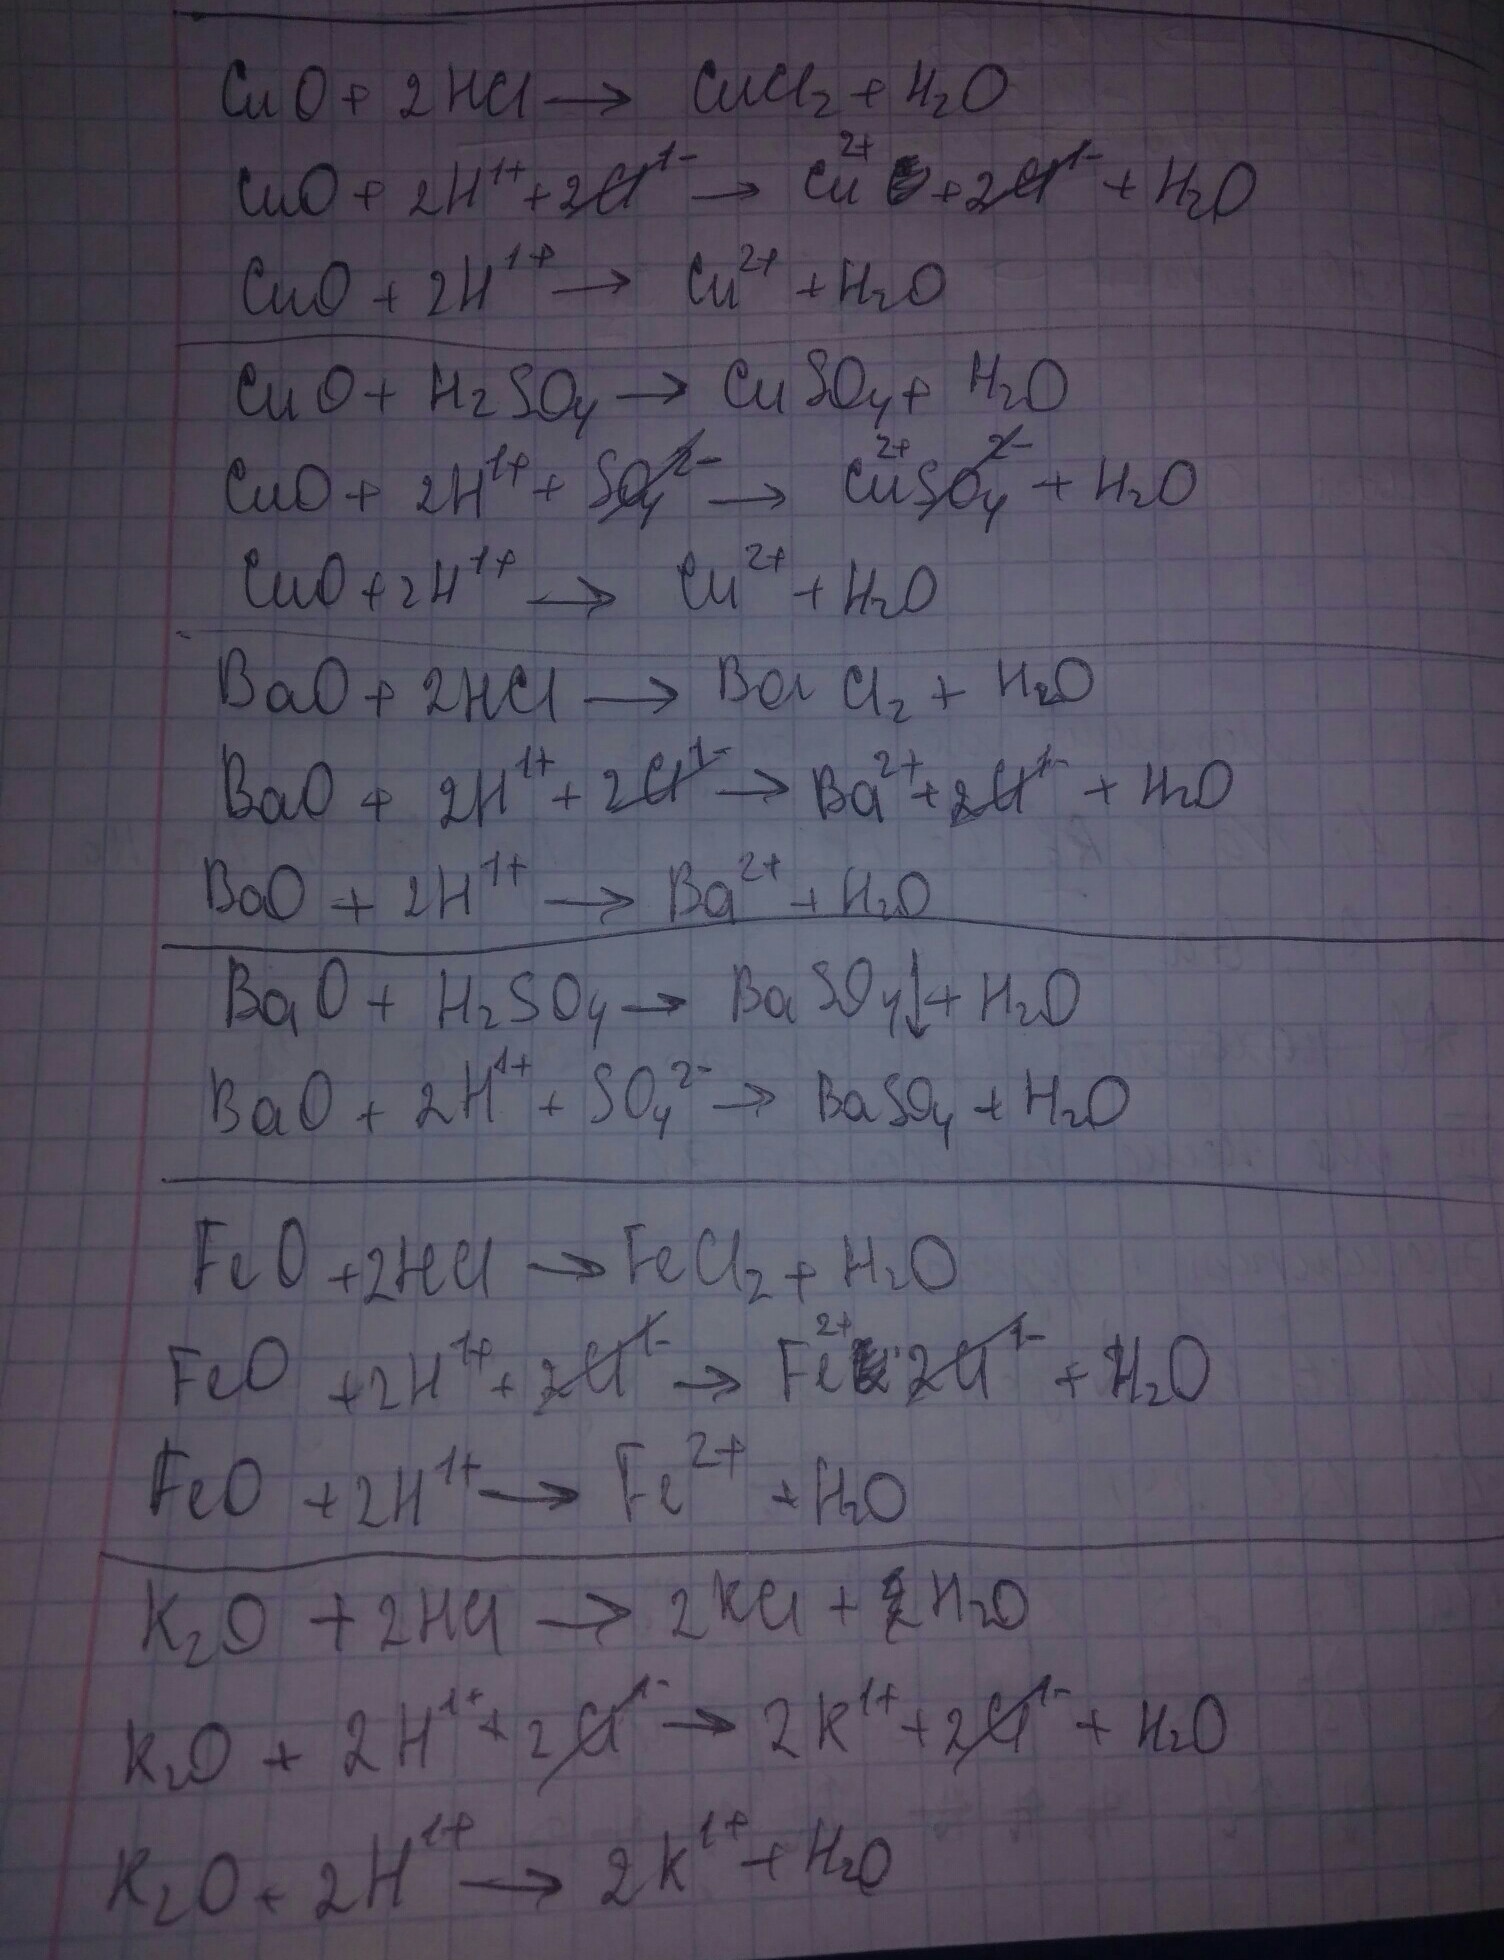 CuO + 2HCl → CuCl₂ + H₂O
CuO + 2H¹⁺ + 2Cl¹⁻ → Cu²⁺ + 2Cl¹⁻ + H₂O
CuO + 2H¹⁺ → Cu²⁺ + H₂O
CuO + H₂SO₄ → CuSO₄ + H₂O
CuO + 2H¹⁺ + SO₄²⁻ → Cu²⁺SO₄²⁻ + H₂O
CuO + 2H¹⁺ → Cu²⁺ + H₂O
BaO + 2HCl → BaCl₂ + H₂O
BaO + 2H¹⁺ + 2Cl¹⁻ → Ba²⁺ + 2Cl¹⁻ + H₂O
BaO + 2H¹⁺ → Ba²⁺ + H₂O
BaO + H₂SO₄ → BaSO₄↓ + H₂O
BaO + 2H¹⁺ + SO₄²⁻ → BaSO₄ + H₂O
FeO + 2HCl → FeCl₂ + H₂O
FeO + 2H¹⁺ + 2Cl¹⁻ → Fe²⁺ 2Cl¹⁻ + H₂O
FeO + 2H¹⁺ → Fe²⁺ + H₂O
K₂O + 2HCl → 2KCl + H₂O
K₂O + 2H¹⁺ + 2Cl¹⁻ → 2K¹⁺ + 2Cl¹⁻ + H₂O
K₂O + 2H¹⁺ → 2K¹⁺ + H₂O